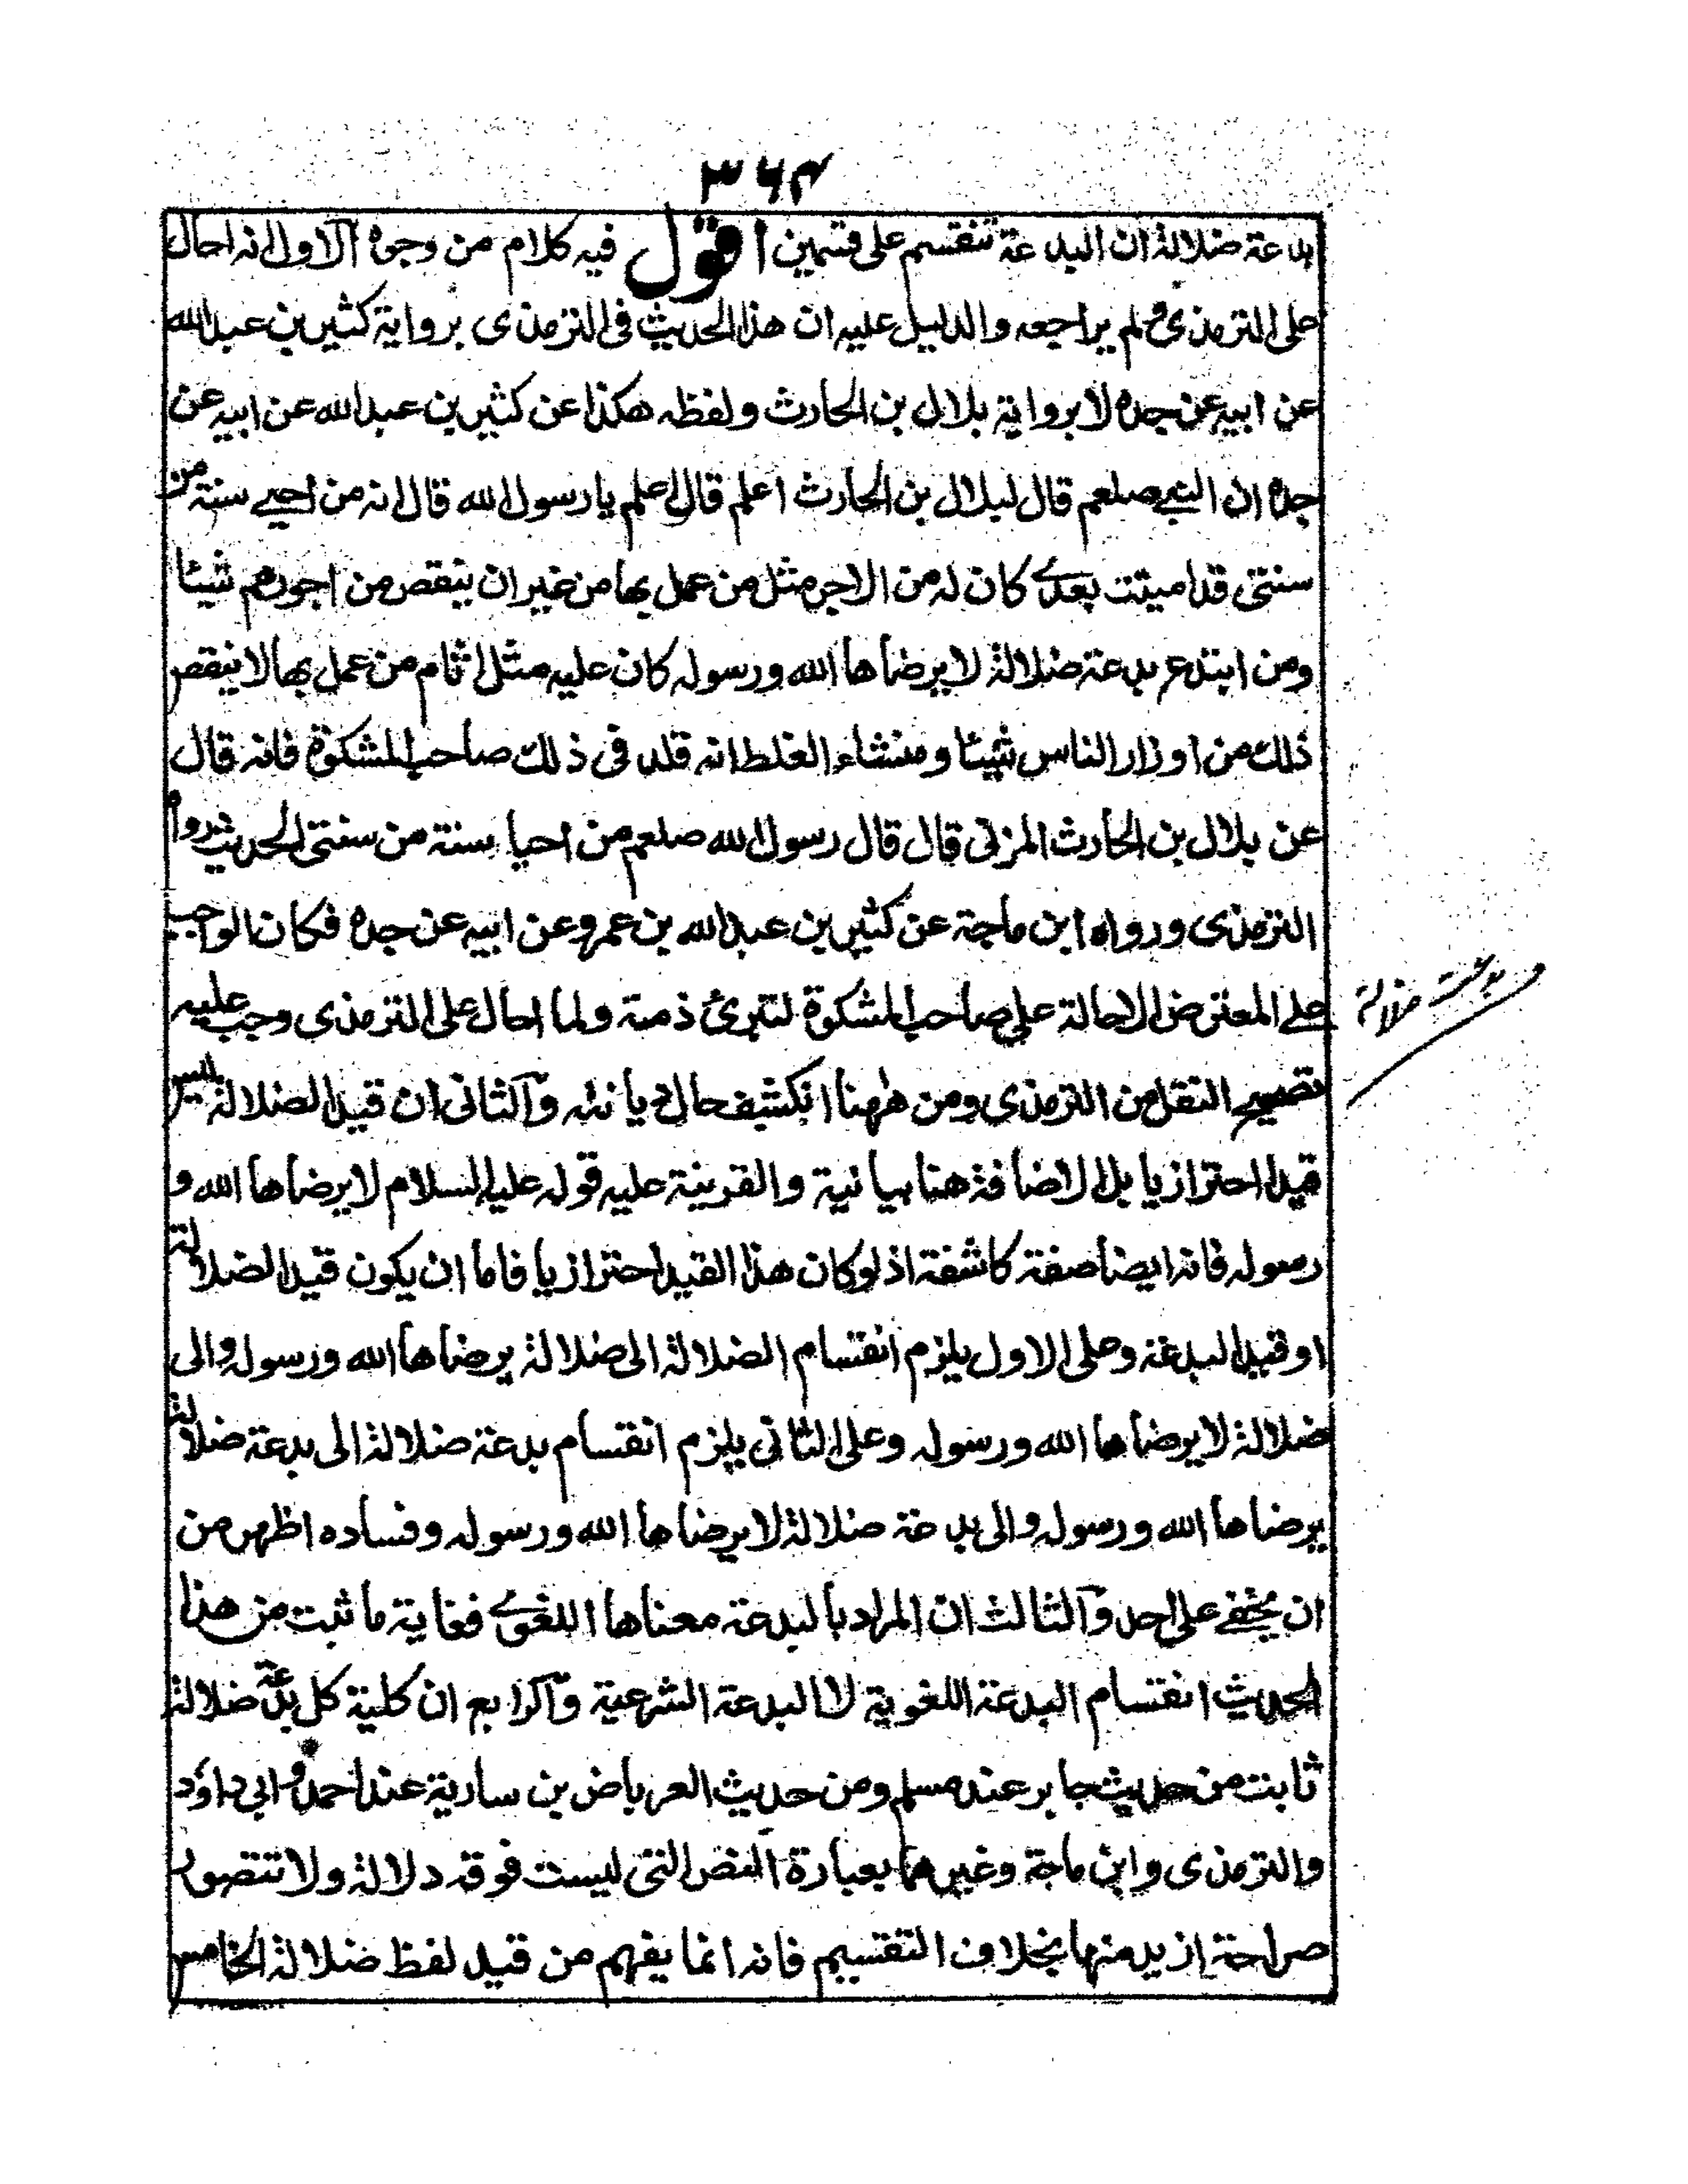 ٣٦٤
بدعة ضلالة ان البدعة تنقسم على قسمين اقول فيه كلام من وجوه الاول انه احال
على الترمذى ولم يراجعه والدليل عليه ان هذا الحديث فى الترمذى برواية كثير بن عبد الله
عن ابيه عن جده لا برواية بلال بن الحارث ولفظه هكذا عن كثير بن عبد الله عن ابيه عن
جده ان النبي صلعم قال لبلال بن الحارث اعلم قال اعلم يا رسول الله قال انه من احيى سنة من
سنتى قد اميتت بعدى كان له من الاجر مثل من عمل بها من غير ان ينقص من اجورهم شيئا
ومن ابتدع بدعة ضلالة لا يرضاها الله ورسوله كان عليه مثل اثام من عمل بها لا ينقص
ذلك من اوزار الناس شيئا ومنشاء الغلط انه قلد فى ذلك صاحب المشكوة فانه قال
عن بلال بن الحارث المزنى قال قال رسول الله صلعم من احيا سنة من سنتى الحديث رواه
الترمذى ورواه ابن ماجة عن كثير بن عبد الله بن عمرو عن ابيه عن جده فكان الواجب
على المعترض الاحالة على صاحب المشكوة لتبرئ ذمته ولما احال على الترمذى وجب عليه
تصحيح النقل من الترمذى ومن ههنا انكشف حال ديانته والثانى ان قيد الضلالة ليس
قيدا احترازيا بل الاضافة هنا بيانية والقرينة عليه قوله عليه السلام لا يرضاها الله و
رسوله فانه ايضا صفة كاشفة اذ لو كان هذا القيد احترازيا فاما ان يكون قيد الضلالة
او قيد البدعة وعلى الاول يلزم انقسام الضلالة الى ضلالة يرضاها الله ورسوله والى
ضلالة لا يرضاها الله ورسوله وعلى الثانى يلزم انقسام بدعة ضلالة الى بدعة ضلالة
يرضاها الله ورسوله والى بدعة ضلالة لا يرضاها الله ورسوله وفساده اظهر من
ان يخفى على احد والثالث ان المراد بالبدعة معناها اللغوى فغاية ما ثبت من هذا
الحديث انقسام البدعة اللغوية لا البدعة الشرعية والرابع ان كلية كل بدعة ضلالة
ثابت من حديث جابر عند مسلم ومن حديث العرباض بن سارية عند احمد وابى داؤد
والترمذى وابن ماجة وغيرهما بعبارة النص التى ليست فوقه دلالة ولا تتصور
صراحة ازيد منها بخلاف التقسيم فانه انما يفهم من قيد لفظ ضلالة الخامس
ضلالة